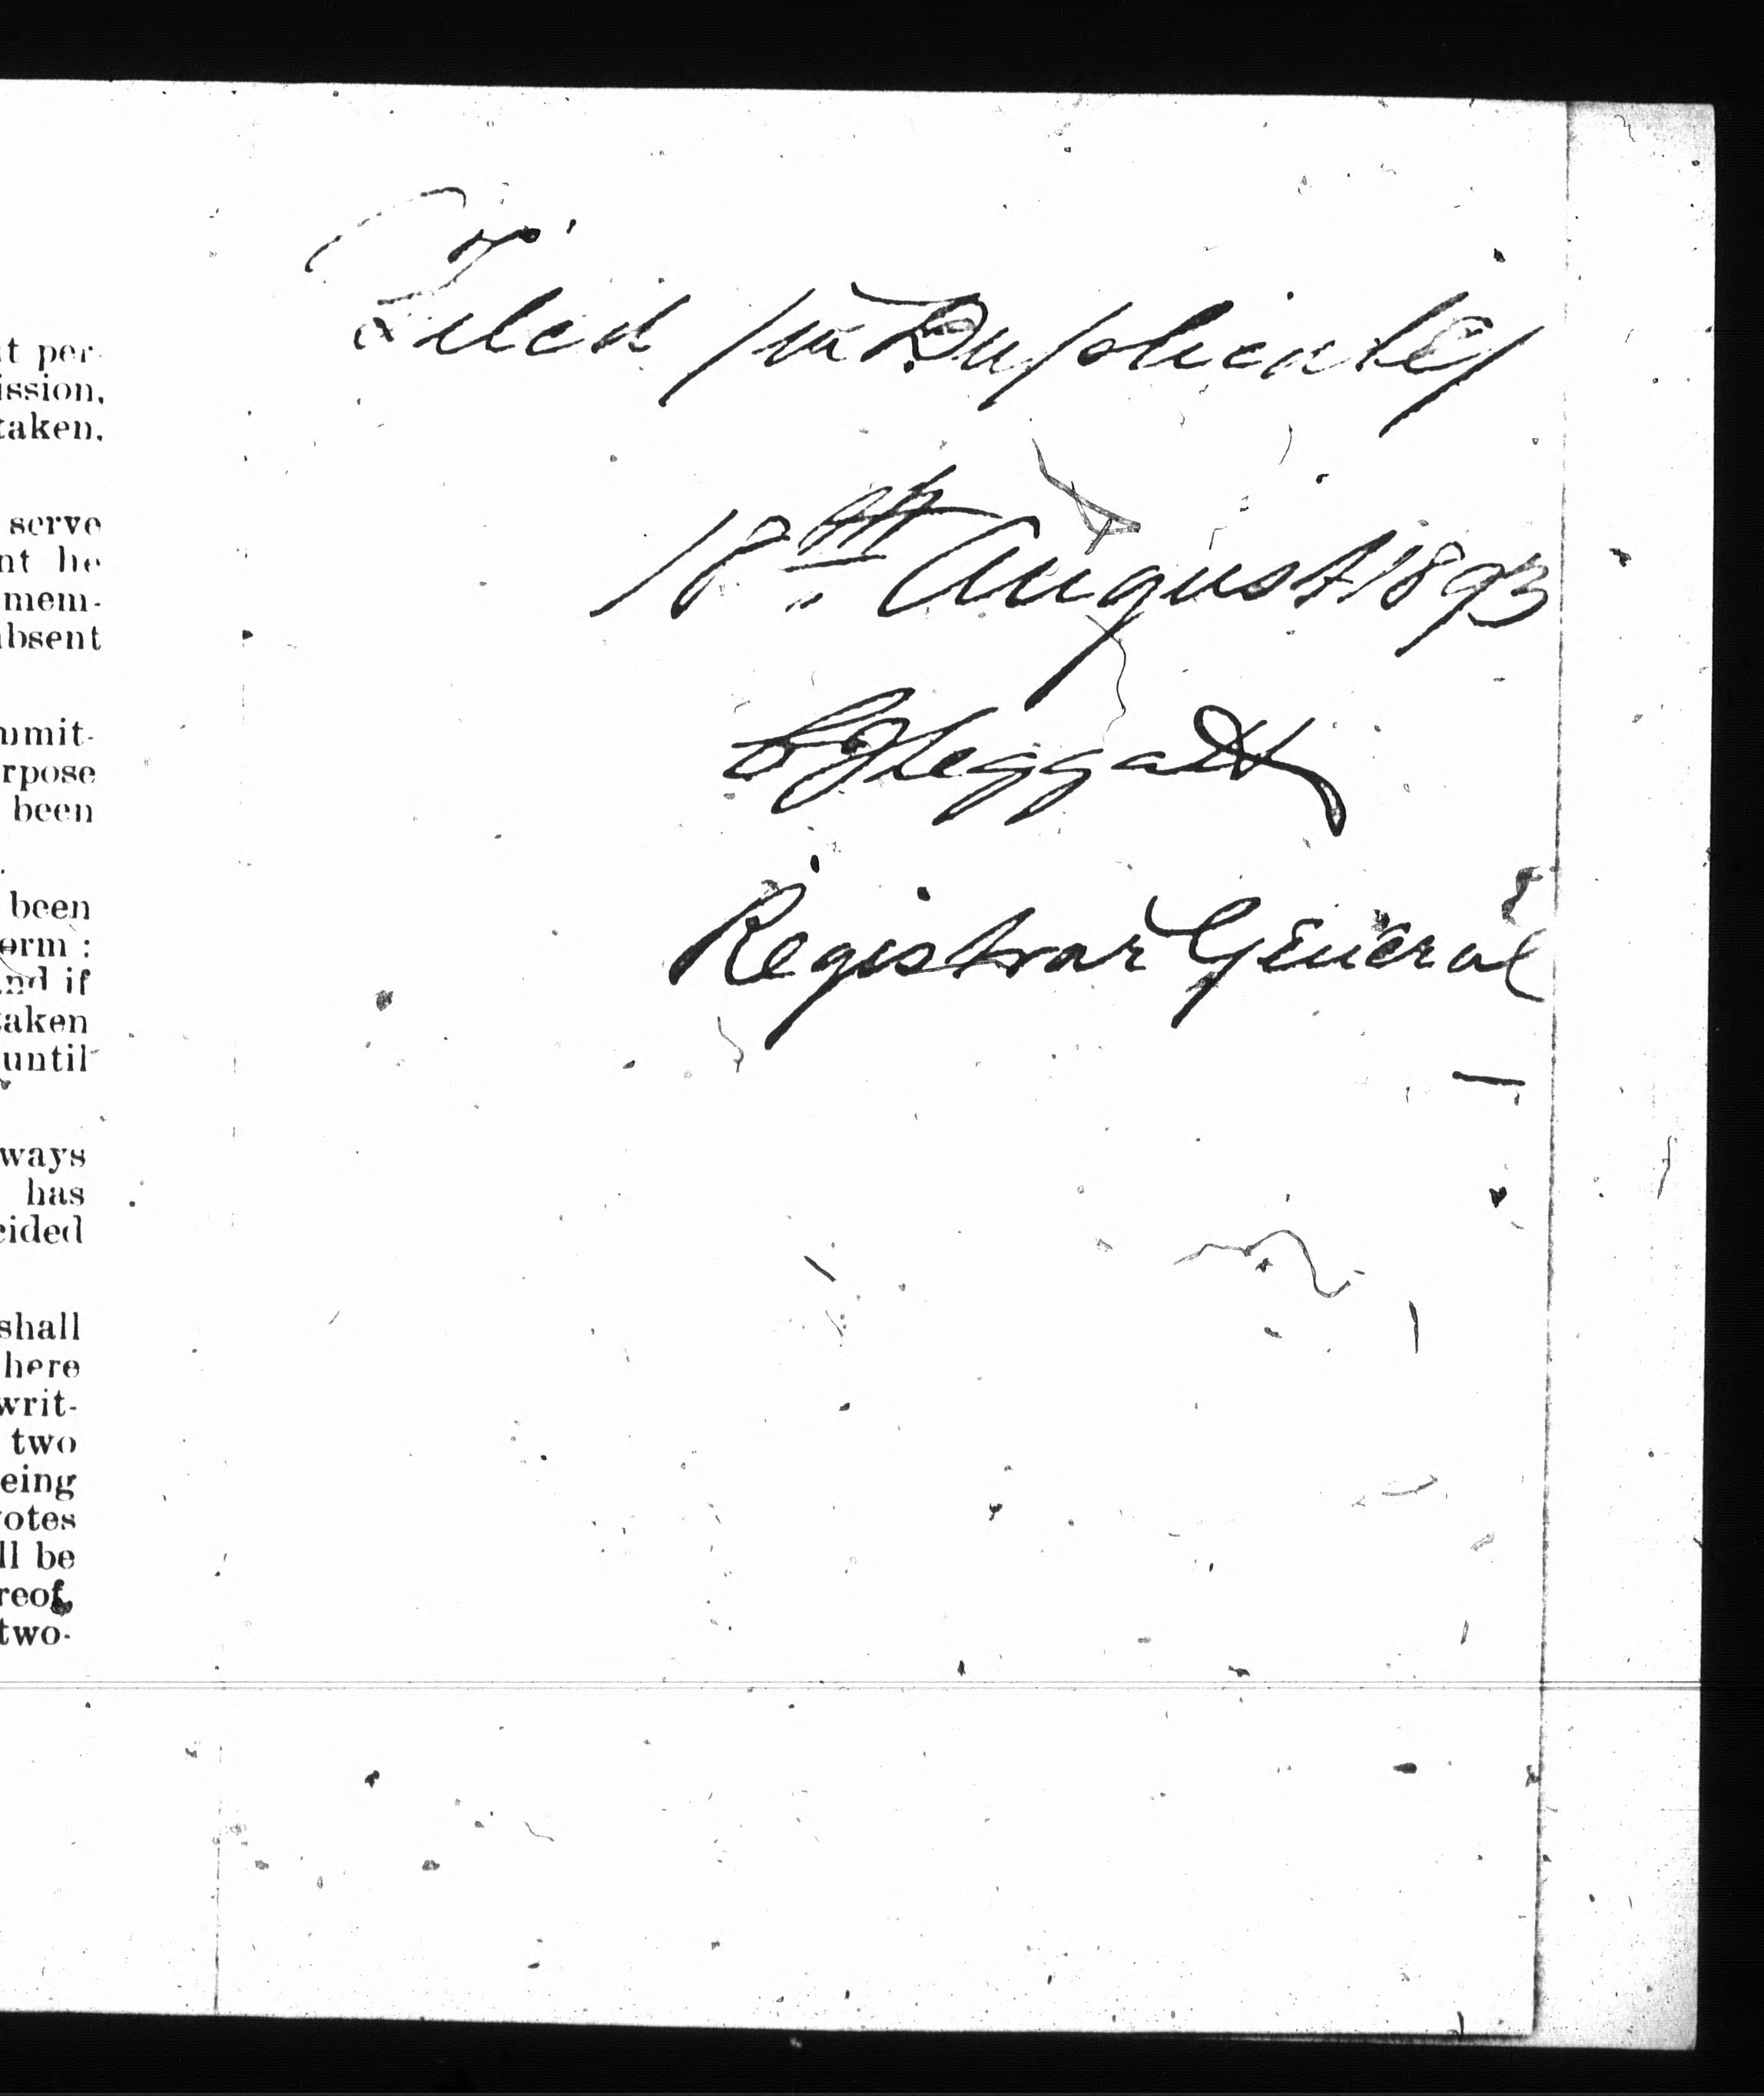 t per-
ission,
taken.
serve
nt he
mem-
absent
mmit-
rpose
been
been
orm :
and if
taken
until
ways
has
cided
shall
here
writ-
two
eing
votes
ll be
reof,
two-
Filed in Duplicate
18th August 1893
Leggatt
Registrar General